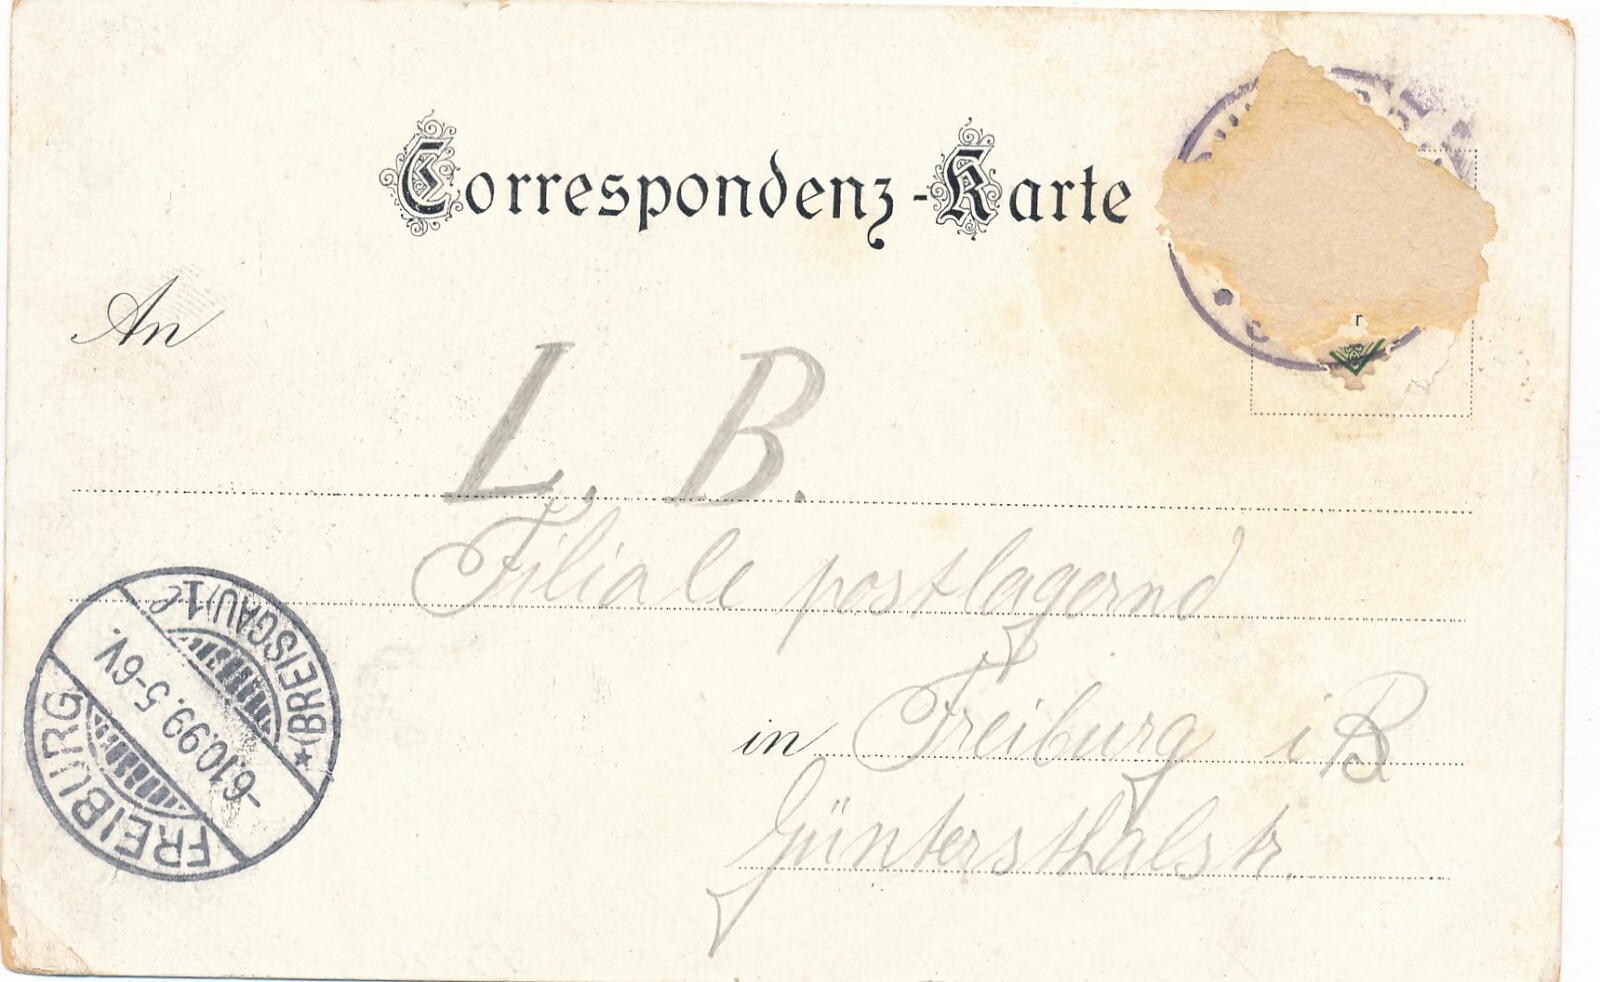 Correspondenz-Karte
An
L. B.
Filiale postlagernd
in Freiburg i B
Güntersthalstr.
FREIBURG
-6.10.99.5-6V.
*(BREISGAU)1e
r